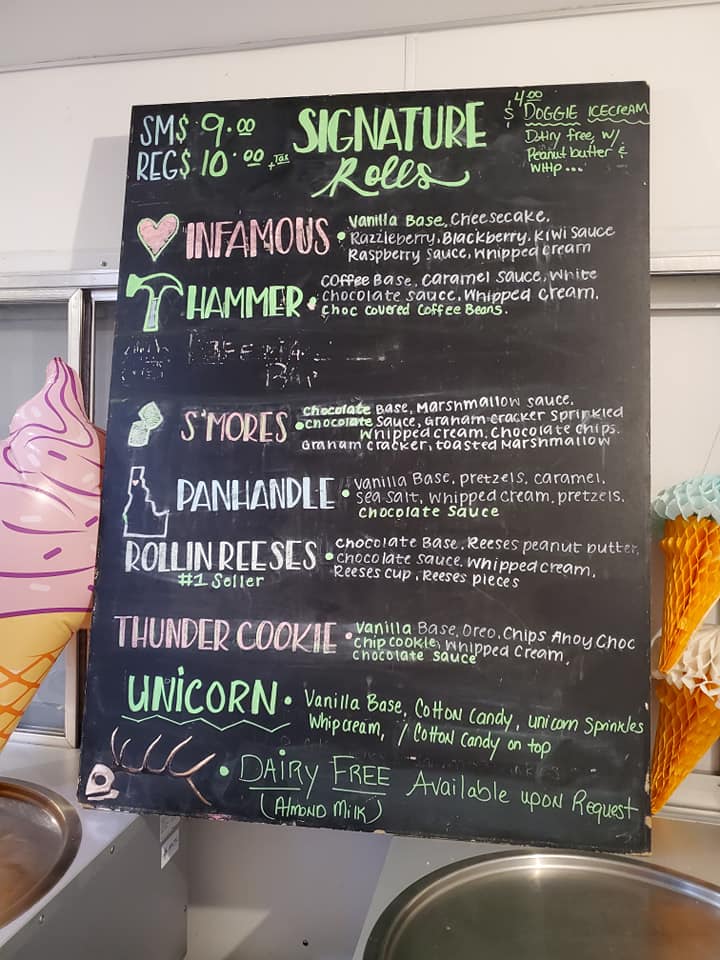 SM$ 9.00
REG$ 10.00 +Tax
SIGNATURE
Rolls
$4.00
DOGGIE ICECREAM
Dairy free, w/
Peanut butter &
WHIP...
INFAMOUS • Vanilla Base, Cheesecake,
Razzleberry, Blackberry, Kiwi Sauce
Raspberry Sauce, Whipped Cream
HAMMER • Coffee Base, Caramel Sauce, White
chocolate sauce, Whipped Cream,
Choc covered Coffee Beans.
S'MORES • Chocolate Base, Marshmallow sauce,
chocolate Sauce, Graham cracker Sprinkled
Whipped cream, Chocolate chips.
Graham cracker, toasted Marshmallow
PANHANDLE • Vanilla Base, pretzels, caramel,
sea salt, whipped cream, pretzels,
Chocolate Sauce
ROLLIN REESES • Chocolate Base, Reeses peanut butter,
#1 Seller
chocolate sauce, Whipped Cream,
Reeses Cup, Reeses pieces
THUNDER COOKIE • Vanilla Base, Oreo, Chips Ahoy Choc
Chip cookie, Whipped Cream,
chocolate sauce
UNICORN • Vanilla Base, Cotton Candy, unicorn Sprinkles
Whipcream, / Cotton Candy on top
• DAIRY FREE Available upon Request
(Almond Milk)